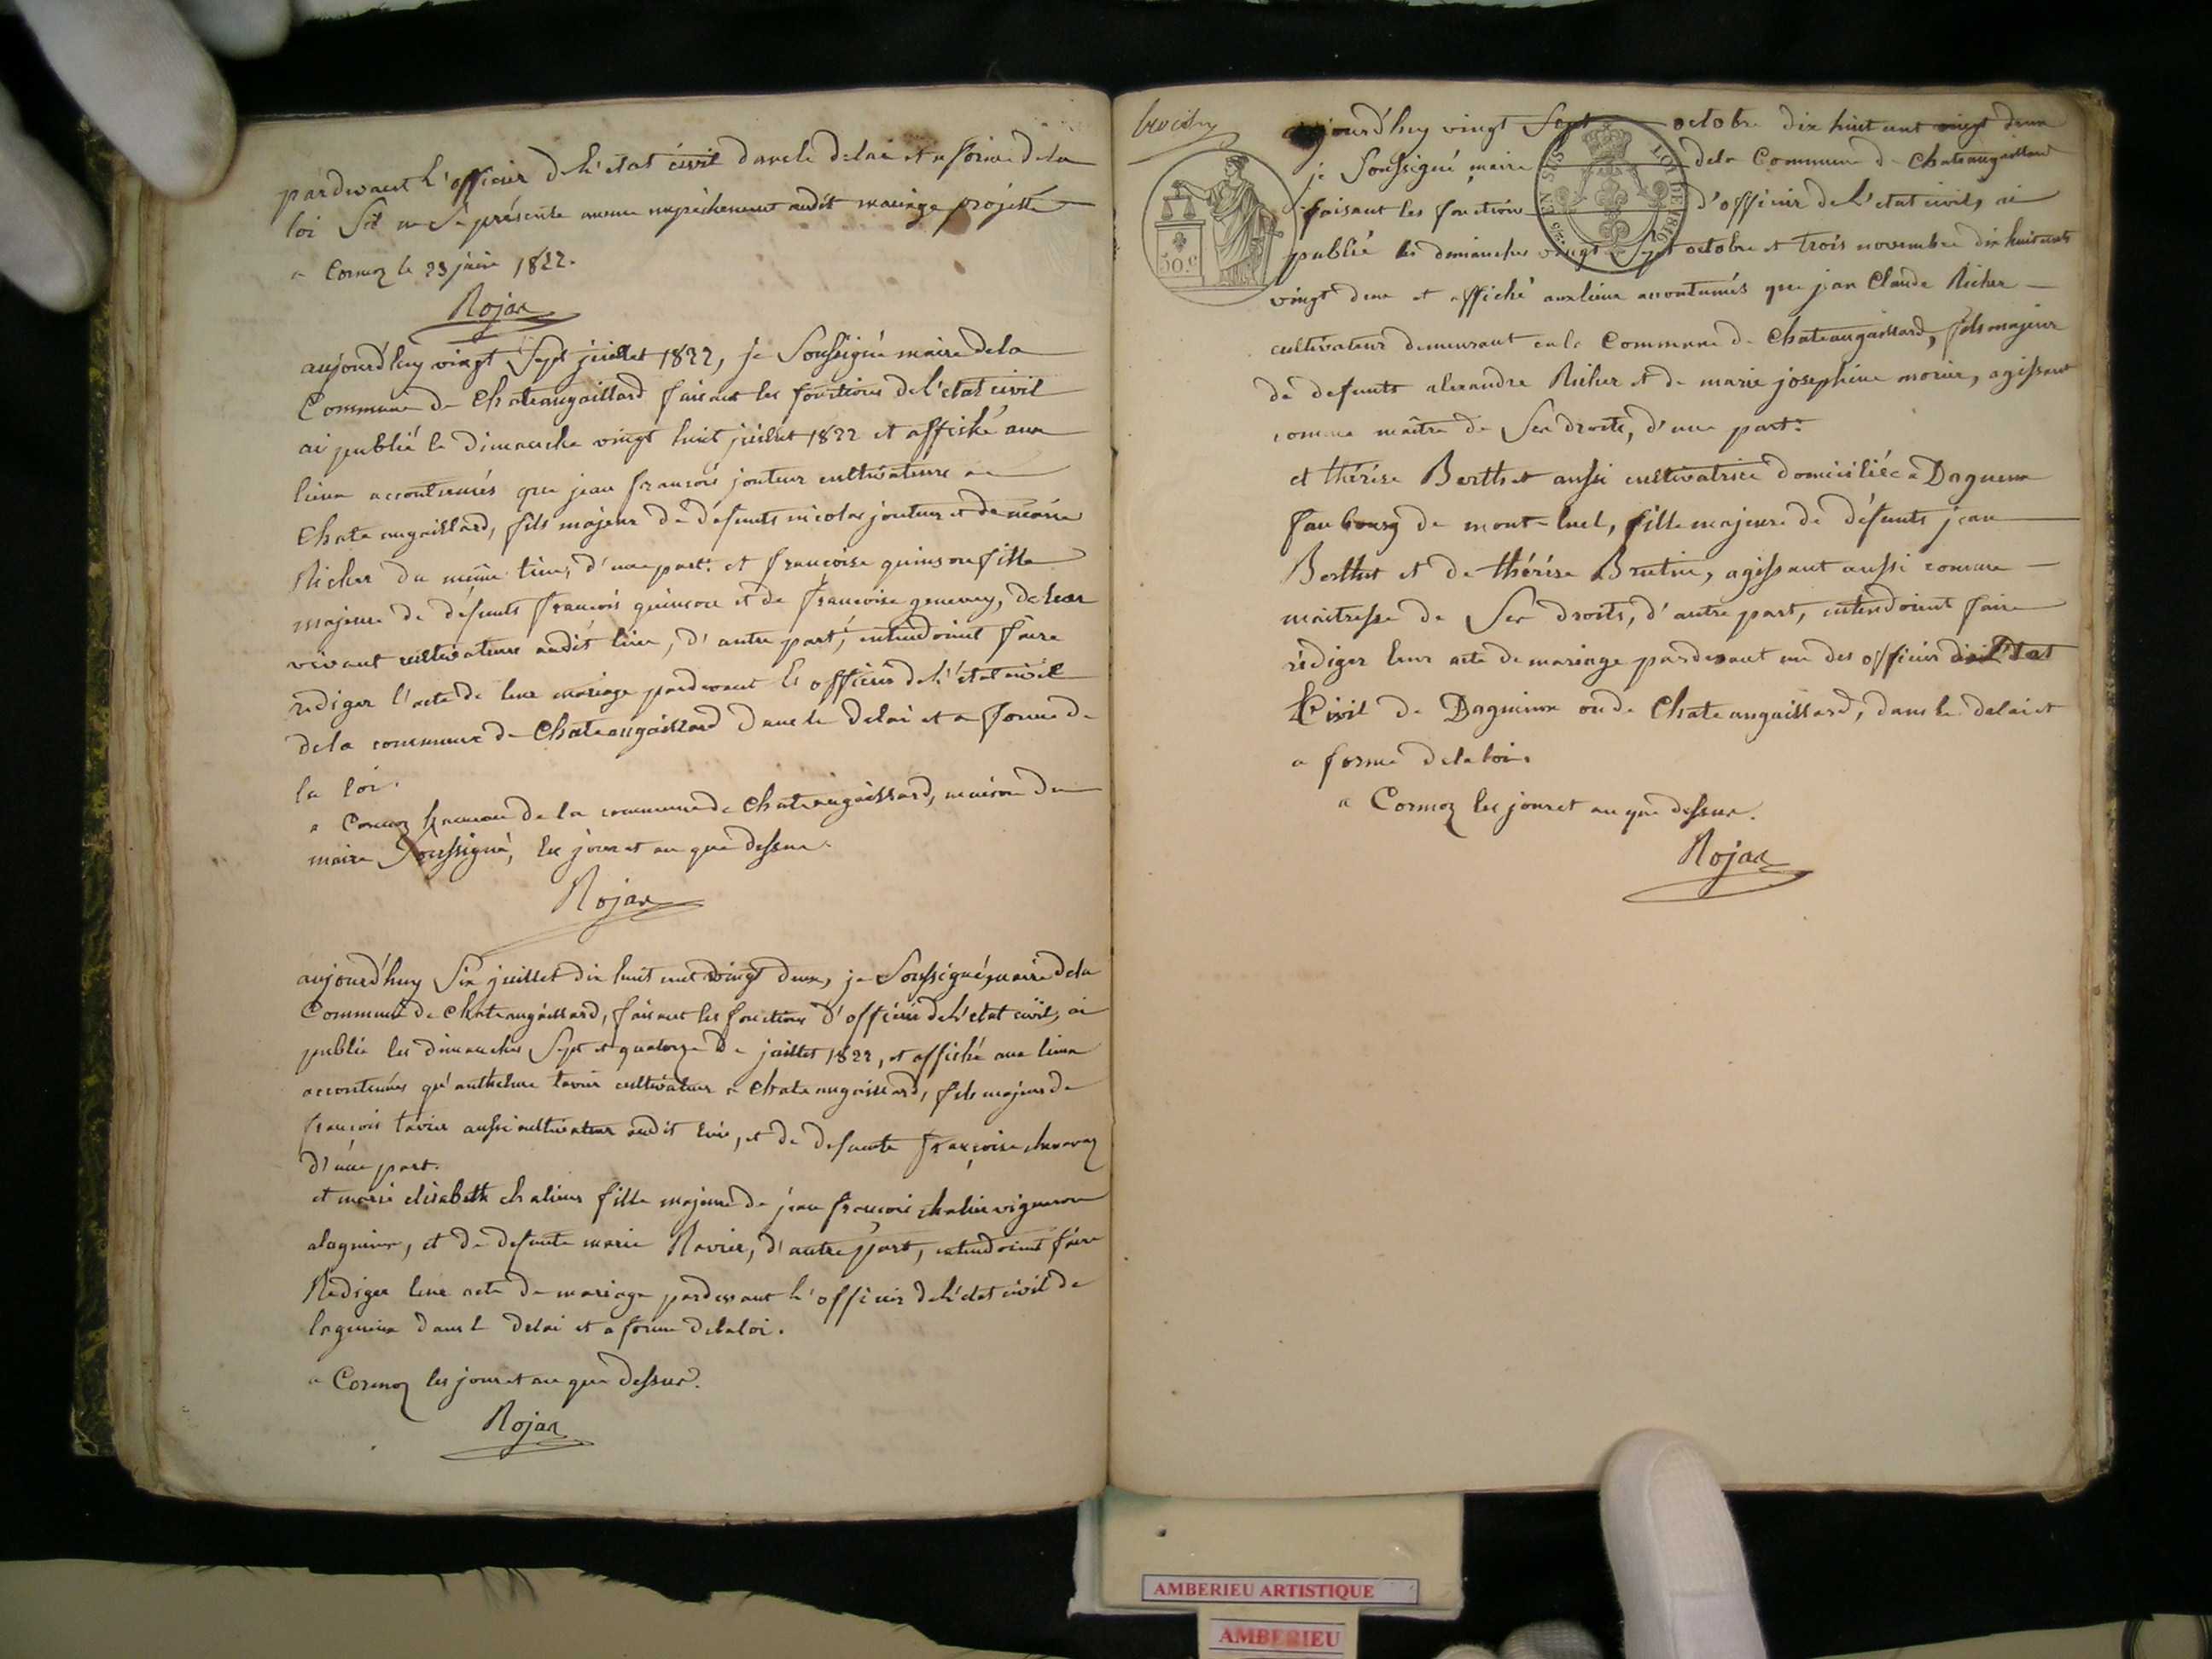 pardevant l'officier de l'état civil dans le delai et a forme de la
loi s'il ne se présente aucun empêchement audit mariage projetté
a Cormoz le 23 juin 1822.
Rojat
aujourd'huy vingt Sept juillet 1822, je Soussigné maire de la
Commune de Chateaugaillard faisant les fonctions de l'etat civil
ai publié le dimanche vingt huit juillet 1822 et affiché aux
lieux accoutumés que jean françois jouteur cultivateur a
Chateaugaillard, fils majeur de défunts nicolas jouteur et de marie
Richer du même lieu, d'une part. et françoise quinson fille
majeure de défunts françois quinson et de françoise genevey, de leur
vivant cultivateurs audit lieu, d'autre part, entendoient faire
rediger l'acte de leur mariage pardevant l'officier de l'état civil
de la commune de Chateaugaillard dans le delai et a forme de
la loi.
a Cormoz hameau de la commune de Chateaugaillard, maison du
maire Soussigné, les jour et an que dessus.
Rojat
aujourd'huy Six juillet dix huit cent vingt deux, je Soussigné maire de la
Commune de Chateaugaillard, faisant les fonctions d'officier de l'etat civil, ai
publié les dimanches Sept et quatorze de juillet 1822, et affiché aux lieux
accoutumés qu'anthelme tavier cultivateur a Chateaugaillard, fils majeur de
françois tavier aussi cultivateur audit lieu, et de defunte françoise
d'une part.
et marie elisabeth chalieux fille majeure de jean françois vigneron
a lagnieux, et de defunte marie Ravier, d'autre part, entendoient faire
Rediger leur acte de mariage pardevant l'officier de l'etat civil de
lagnieux dans le delai et a forme de la loi.
a Cormoz les jour et an que dessus.
Rojat
aujourd'huy vingt Sept octobre dix huit cent vingt deux
je Soussigné maire de la Commune de Chateaugaillard
faisant les fonctions d'officier de l'etat civil, ai
publié les dimanches vingt Sept octobre et trois novembre dix huit cent
vingt deux et affiché aux lieux accoutumés que jean Claude Richer
cultivateur demeurant en la Commune de Chateaugaillard, fils majeur
de defunts alexandre Richer et de marie josephine morier, agissant
comme maître de Ses droits, d'une part.
et thérèse Berthet aussi cultivatrice domiciliée a Dagneux
faubourg de mont-luel, fille majeure de défunts jean
Berthet et de thérèse Brutin, agissant aussi comme
maitresse de Ses droits, d'autre part, entendoient faire
rédiger leur acte de mariage pardevant un des officiers de l'Etat
Civil de Dagneux ou de Chateaugaillard, dans le delai et
a forme de la loi.
a Cormoz les jour et an que dessus.
Rojat
50 c.
EN SUS
LOI DE 1816
AMBERIEU ARTISTIQUE
AMBERIEU